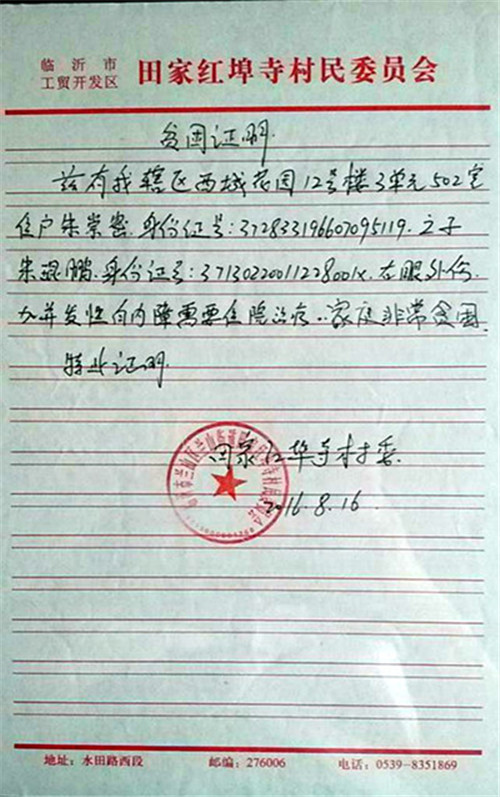 临沂市
工贸开发区
田家红埠寺村民委员会
贫困证明
兹有我辖区西城花园12号楼3单元502室
住户朱崇.身份证号:372833196607095119.之子
朱琨鹏.身份证号:37130220011228001x.左眼外伤.
并发性白内障需要住院治疗.家庭非常贫困.
特此证明.
田家红华寺村委.
2016.8.16
地址:水田路西段 邮编:276006 电话:0539-8351869